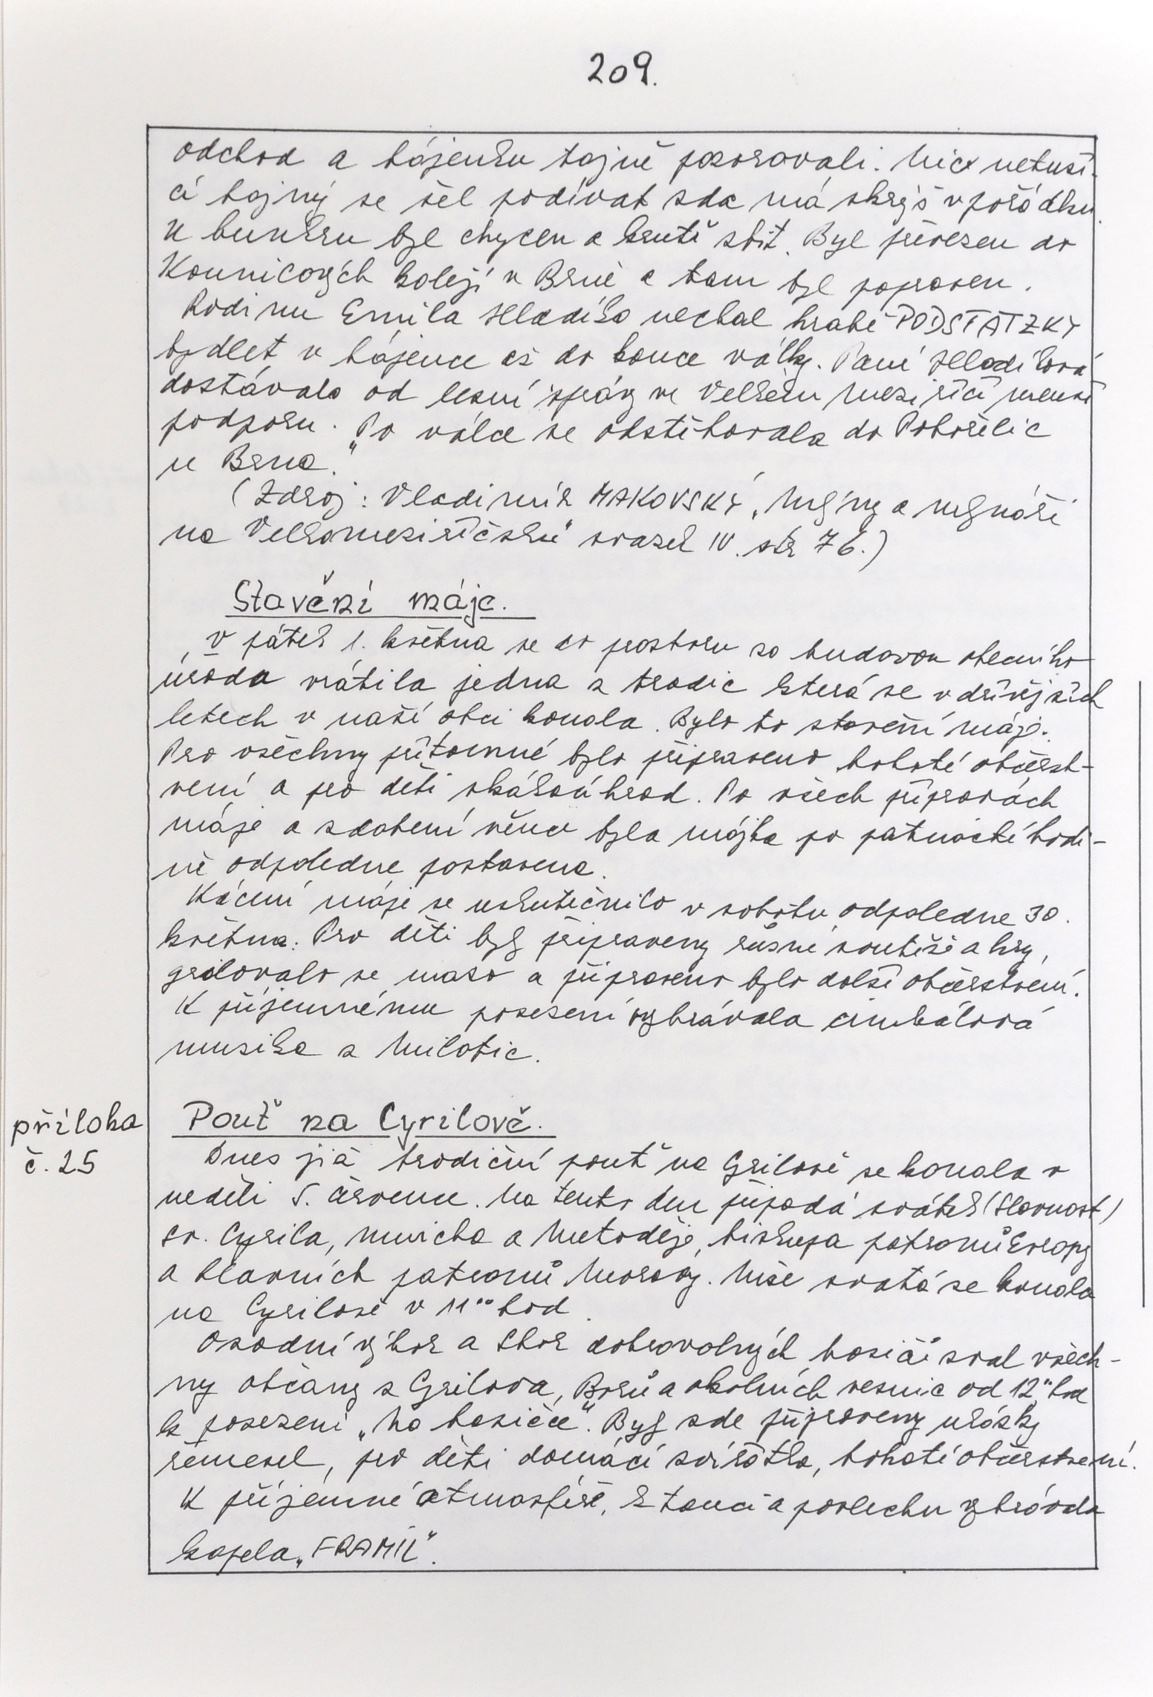 209.
odchod a hájenku tajně pozorovali. Nic netuší-
cí hajný se šel podívat zda má skrýš v pořádku.
U bunkru byl chycen a krutě zbit. Byl převezen do
Kounicových kolejí v Brně a tam byl popraven.
Rodinu Emila Hladíka nechal hrabě PODSTATZKY
bydlet v hájence až do konce války. Paní Hladíková
dostávala od lesní správy ve Velkém Meziříčí menší
podporu. Po válce se odstěhovala do Pohořelic
u Brna."
(Zdroj: Vladimír MAKOVSKÝ, „Mlýny a mlynáři
na Velkomeziříčsku" svazek IV. str 76.)
Stavění máje.
V pátek 1. května se do prostoru za budovou obecního
úřadu vrátila jedna z tradic která se v dřívějších
letech v naší obci konala. Bylo to stavění máje.
Pro všechny přítomné bylo připraveno bohaté občerst-
vení a pro děti skákací hrad. Po všech přípravách
máje a zdobení věnce byla májka po patnácté hodi-
ně odpoledne postavena.
Kácení máje se uskutečnilo v sobotu odpoledne 30.
května. Pro děti byly připraveny různé soutěže a hry,
grilovalo se maso a připraveno bylo další občerstvení.
K příjemnému posezení vyhrávala cimbálová
muzika z Milotic.
příloha
č. 25
Pouť na Cyrilově.
Dnes již tradiční pouť na Cyrilově se konala v
neděli 5. července. Na tento den připadá svátek (Slavnost)
sv. Cyrila, mnicha a Metoděje, biskupa patronů Evropy
a hlavních patronů Moravy. Mše svatá se konala
na Cyrilově v 11⁰⁰ hod.
Osadní výbor a Sbor dobrovolných hasičů zval všech-
ny občany z Cyrilova, Borů a okolních vesnic od 12⁰⁰ hod
k posezení „Na hasičce". Byly zde připraveny ukázky
řemesel, pro děti domácí zvířátka, bohaté občerstvení.
K příjemné atmosféře, k tanci a poslechu vyhrávala
kapela „FRAMIL".